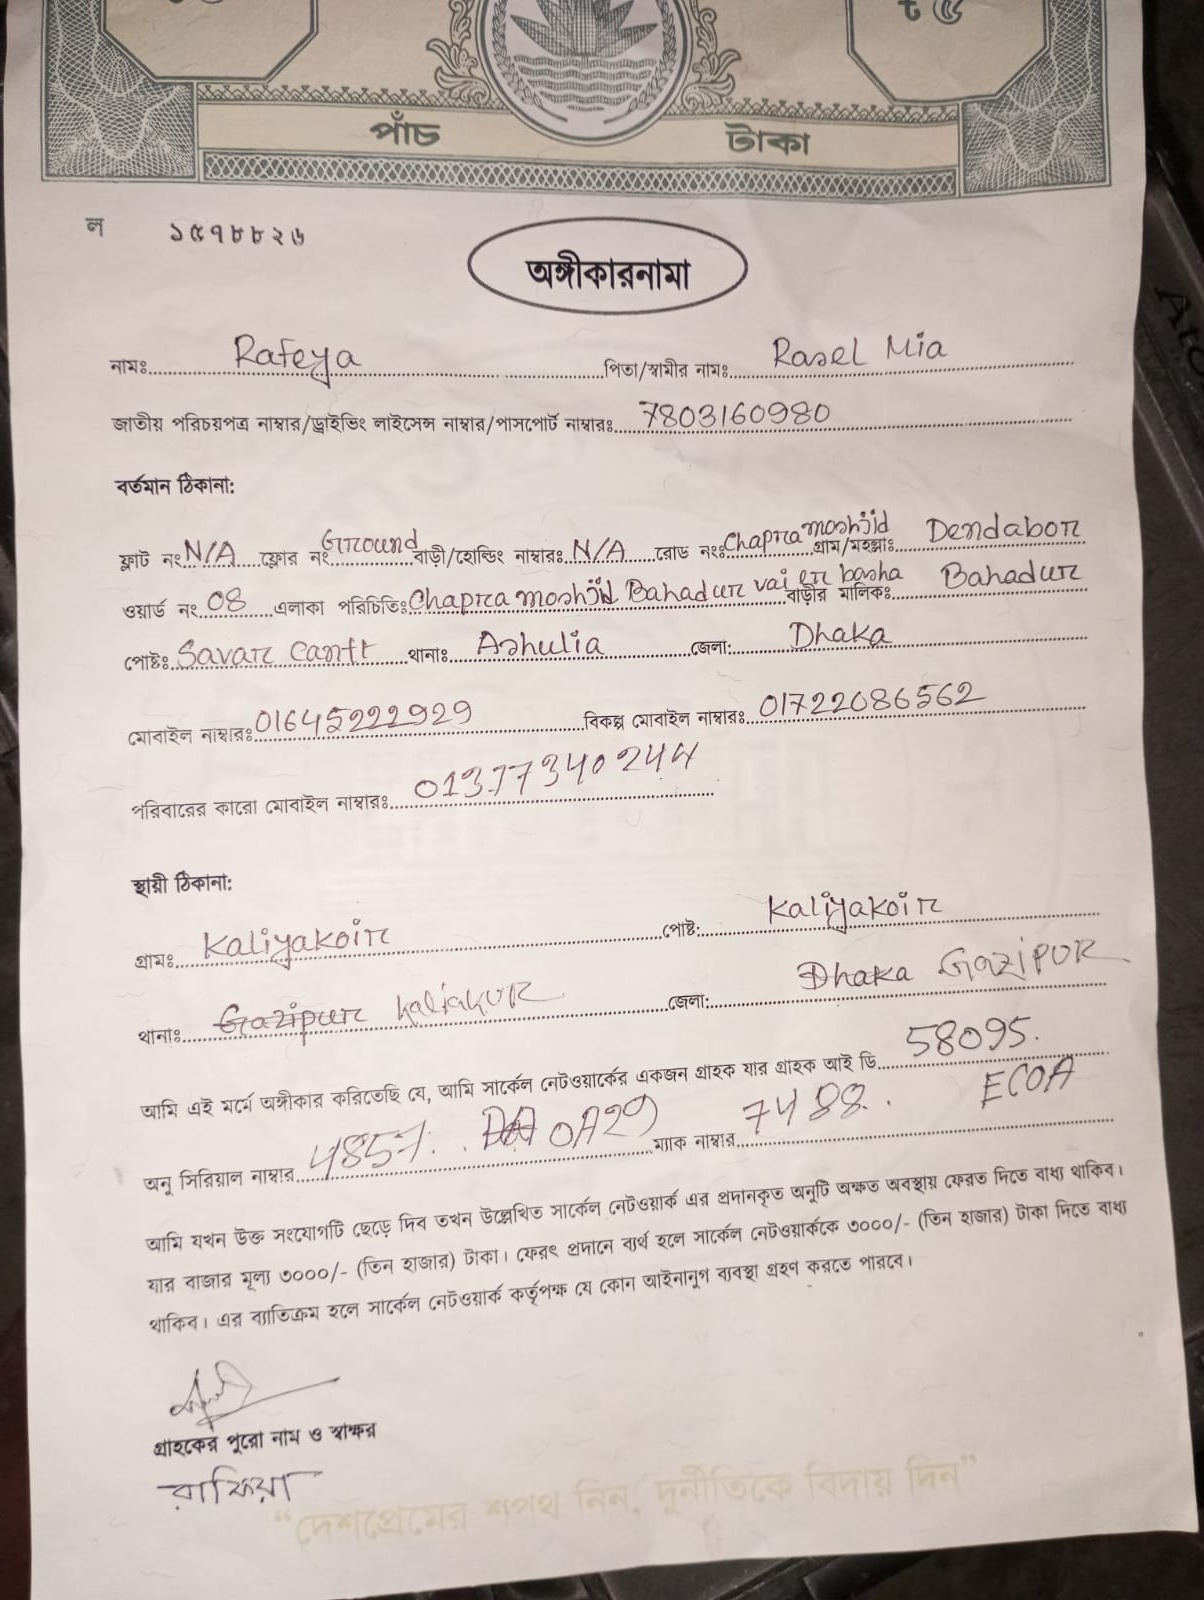 ট ৫
পাঁচ টাকা
ল ১৫৭৮৮২৬
অঙ্গীকারনামা
নামঃ Rafeya পিতা/স্বামীর নামঃ Rasel Mia
জাতীয় পরিচয়পত্র নাম্বার/ড্রাইভিং লাইসেন্স নাম্বার/পাসপোর্ট নাম্বারঃ 7803160980
বর্তমান ঠিকানা:
ফ্লাট নং N/A ফ্লোর নং Ground বাড়ী/হোল্ডিং নাম্বারঃ N/A রোড নংঃ Chapra moshjid গ্রাম/মহল্লাঃ Dendabor
ওয়ার্ড নং 08 এলাকা পরিচিতিঃ Chapra moshjid Bahadur vai er basha বাড়ীর মালিকঃ Bahadur
পোষ্টঃ Savar Cantt থানাঃ Ashulia জেলা: Dhaka
মোবাইল নাম্বারঃ 01645222929 বিকল্প মোবাইল নাম্বারঃ 01722086562
পরিবারের কারো মোবাইল নাম্বারঃ
স্থায়ী ঠিকানা:
গ্রামঃ Kaliyakoir পোষ্ট: Kaliyakoir
থানাঃ Gazipur Kaliakur জেলা: Dhaka GAZIPUR
আমি এই মর্মে অঙ্গীকার করিতেছি যে, আমি সার্কেল নেটওয়ার্কের একজন গ্রাহক যার গ্রাহক আই ডি 58095.
অনু সিরিয়াল নাম্বার 4857. 0A29 ম্যাক নাম্বার 7488. ECOA
আমি যখন উক্ত সংযোগটি ছেড়ে দিব তখন উল্লেখিত সার্কেল নেটওয়ার্ক এর প্রদানকৃত অনুটি অক্ষত অবস্থায় ফেরত দিতে বাধ্য থাকিব।
যার বাজার মূল্য ৩০০০/- (তিন হাজার) টাকা। ফেরৎ প্রদানে ব্যর্থ হলে সার্কেল নেটওয়ার্ককে ৩০০০/- (তিন হাজার) টাকা দিতে বাধ্য
থাকিব। এর ব্যাতিক্রম হলে সার্কেল নেটওয়ার্ক কর্তৃপক্ষ যে কোন আইনানুগ ব্যবস্থা গ্রহণ করতে পারবে।
গ্রাহকের পুরো নাম ও স্বাক্ষর
রাফিয়া
“দেশপ্রেমের শপথ নিন, দুর্নীতিকে বিদায় দিন”